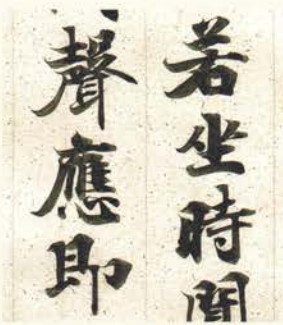 若坐時
聲應即